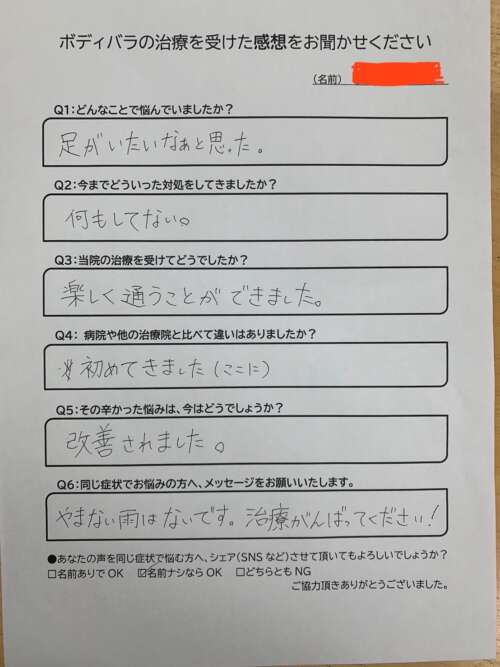 ボディバラの治療を受けた感想をお聞かせください
（名前）
Q1：どんなことで悩んでいましたか？
足がいたいなぁと思った。
Q2：今までどういった対処をしてきましたか？
何もしてない。
Q3：当院の治療を受けてどうでしたか？
楽しく通うことができました。
Q4： 病院や他の治療院と比べて違いはありましたか？
初めてきました（ここに）
Q5：その辛かった悩みは、今はどうでしょうか？
改善されました。
Q6：同じ症状でお悩みの方へ、メッセージをお願いいたします。
やまない雨はないです。治療がんばってください！
●あなたの声を同じ症状で悩む方へ、シェア（SNS など）させて頂いてもよろしいでしょうか？
□名前ありで OK ☑名前ナシなら OK □どちらとも NG
ご協力頂きありがとうございました。